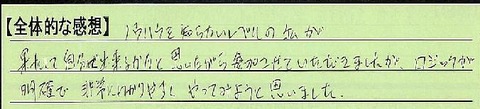 【全体的な感想】 ノウハウを知らないレベルの私が
果たして自分が出来るかなと思いながら参加させていただきましたが、ロジックが
明確で 非常にわかりやすく やってみようと思いました。